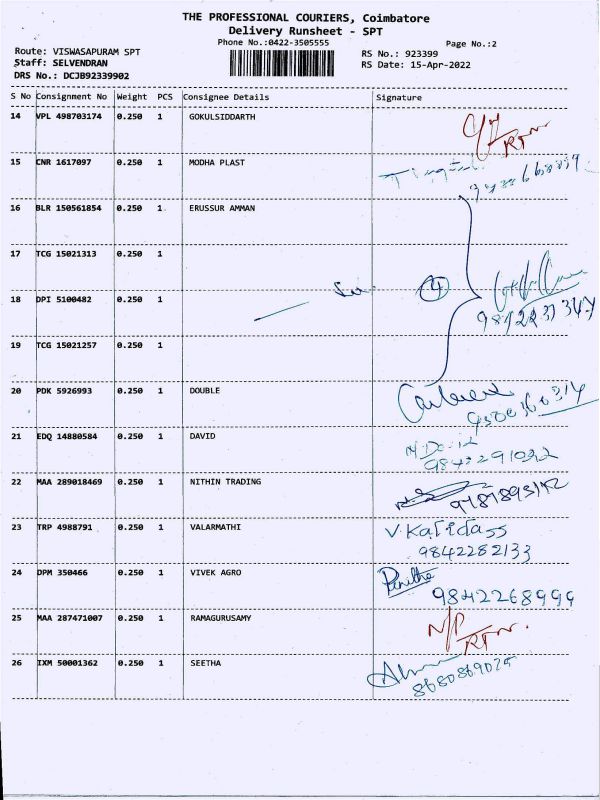 THE PROFESSIONAL COURIERS, Coimbatore
Delivery Runsheet - SPT
Phone No.:0422-3505555
Page No.:2
Route: VISWASAPURAM SPT
RS No.: 923399
Staff: SELVENDRAN
RS Date: 15-Apr-2022
DRS No.: DCJB92339902
S No Consignment No Weight PCS Consignee Details Signature
14 VPL 498703174 0.250 1 GOKULSIDDARTH
RTN
15 CNR 1617097 0.250 1 MODHA PLAST
16 BLR 150561854 0.250 1 ERUSSUR AMMAN
17 TCG 15021313 0.250 1
4
18 DPI 5100482 0.250 1
19 TCG 15021257 0.250 1
20 PDK 5926993 0.250 1 DOUBLE
21 EDQ 14880584 0.250 1 DAVID
22 MAA 289018469 0.250 1 NITHIN TRADING
23 TRP 4988791 0.250 1 VALARMATHI
V. Kalidass
9842282133
24 DPM 350466 0.250 1 VIVEK AGRO
9842268999
25 MAA 287471007 0.250 1 RAMAGURUSAMY
N/P
RTN.
26 IXM 50001362 0.250 1 SEETHA
8680869025